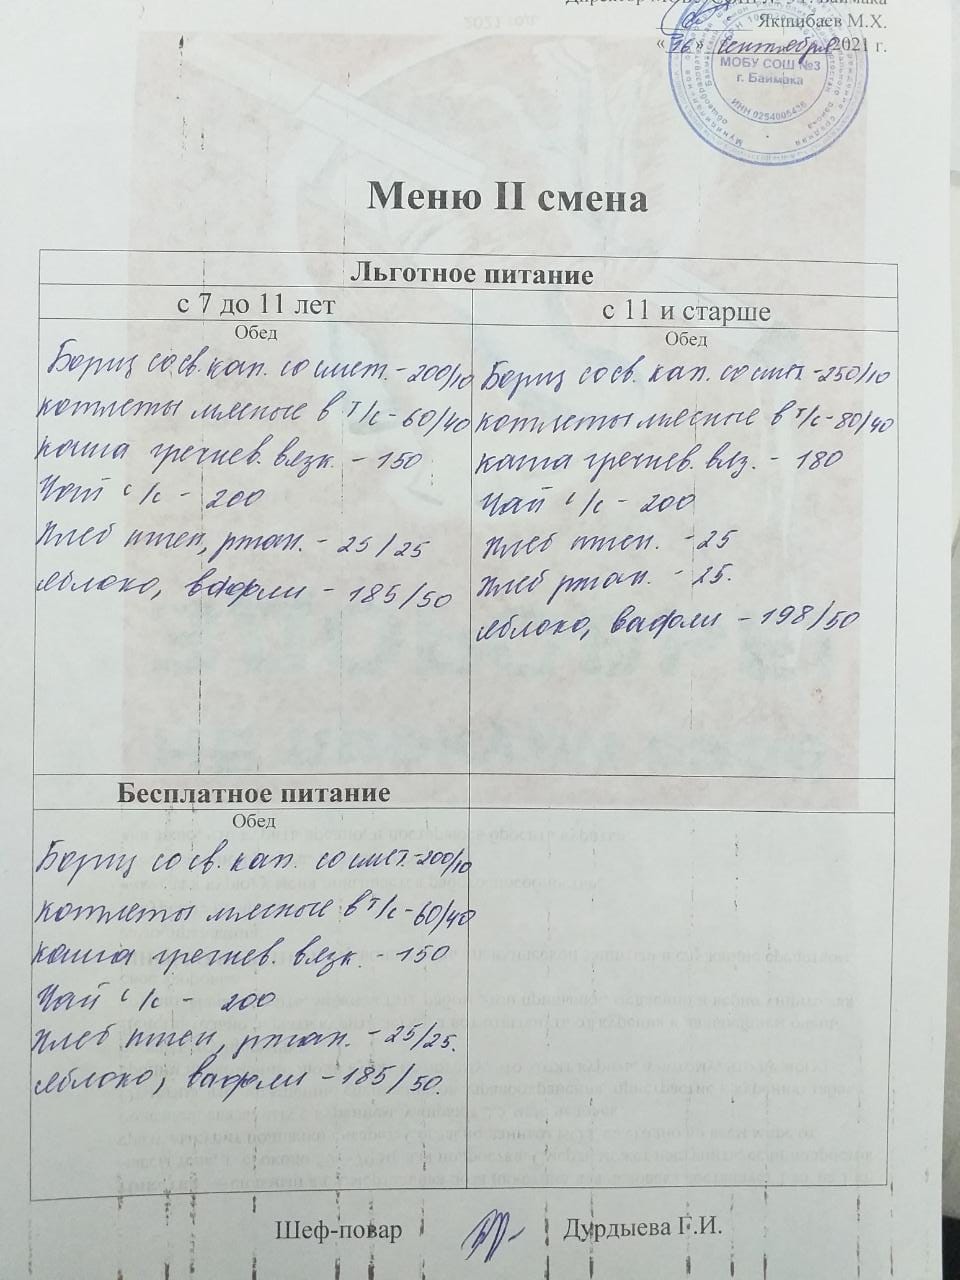 Директор МОБУ СОШ № 3 г. Баймака
Якшибаев М.Х.
« 16 » сентября 2021 г.
МОБУ СОШ №3
г. Баймака
ИНН 0254005436
Меню II смена
Льготное питание
с 7 до 11 лет
с 11 и старше
Обед
Борщ со св. кап. со смет. - 200/10
котлеты мясные в т/с - 60/40
каша гречнев. вязк. - 150
Чай с/с - 200
Хлеб пшен, ржан. - 25/25
яблоко, вафли - 185/50
Обед
Борщ со св. кап. со смет - 250/10
котлеты мясные в т/с - 80/40
каша гречнев. вяз. - 180
Чай с/с - 200
Хлеб пшен. - 25
Хлеб ржан. - 25.
яблоко, вафли - 198/50
Бесплатное питание
Обед
Борщ со св. кап. со смет. - 200/10
котлеты мясные в т/с - 60/40
каша гречнев. вязк. - 150
Чай с/с - 200
Хлеб пшен, ржан. - 25/25.
яблоко, вафли - 185/50.
Шеф-повар
Дурдыева Г.И.